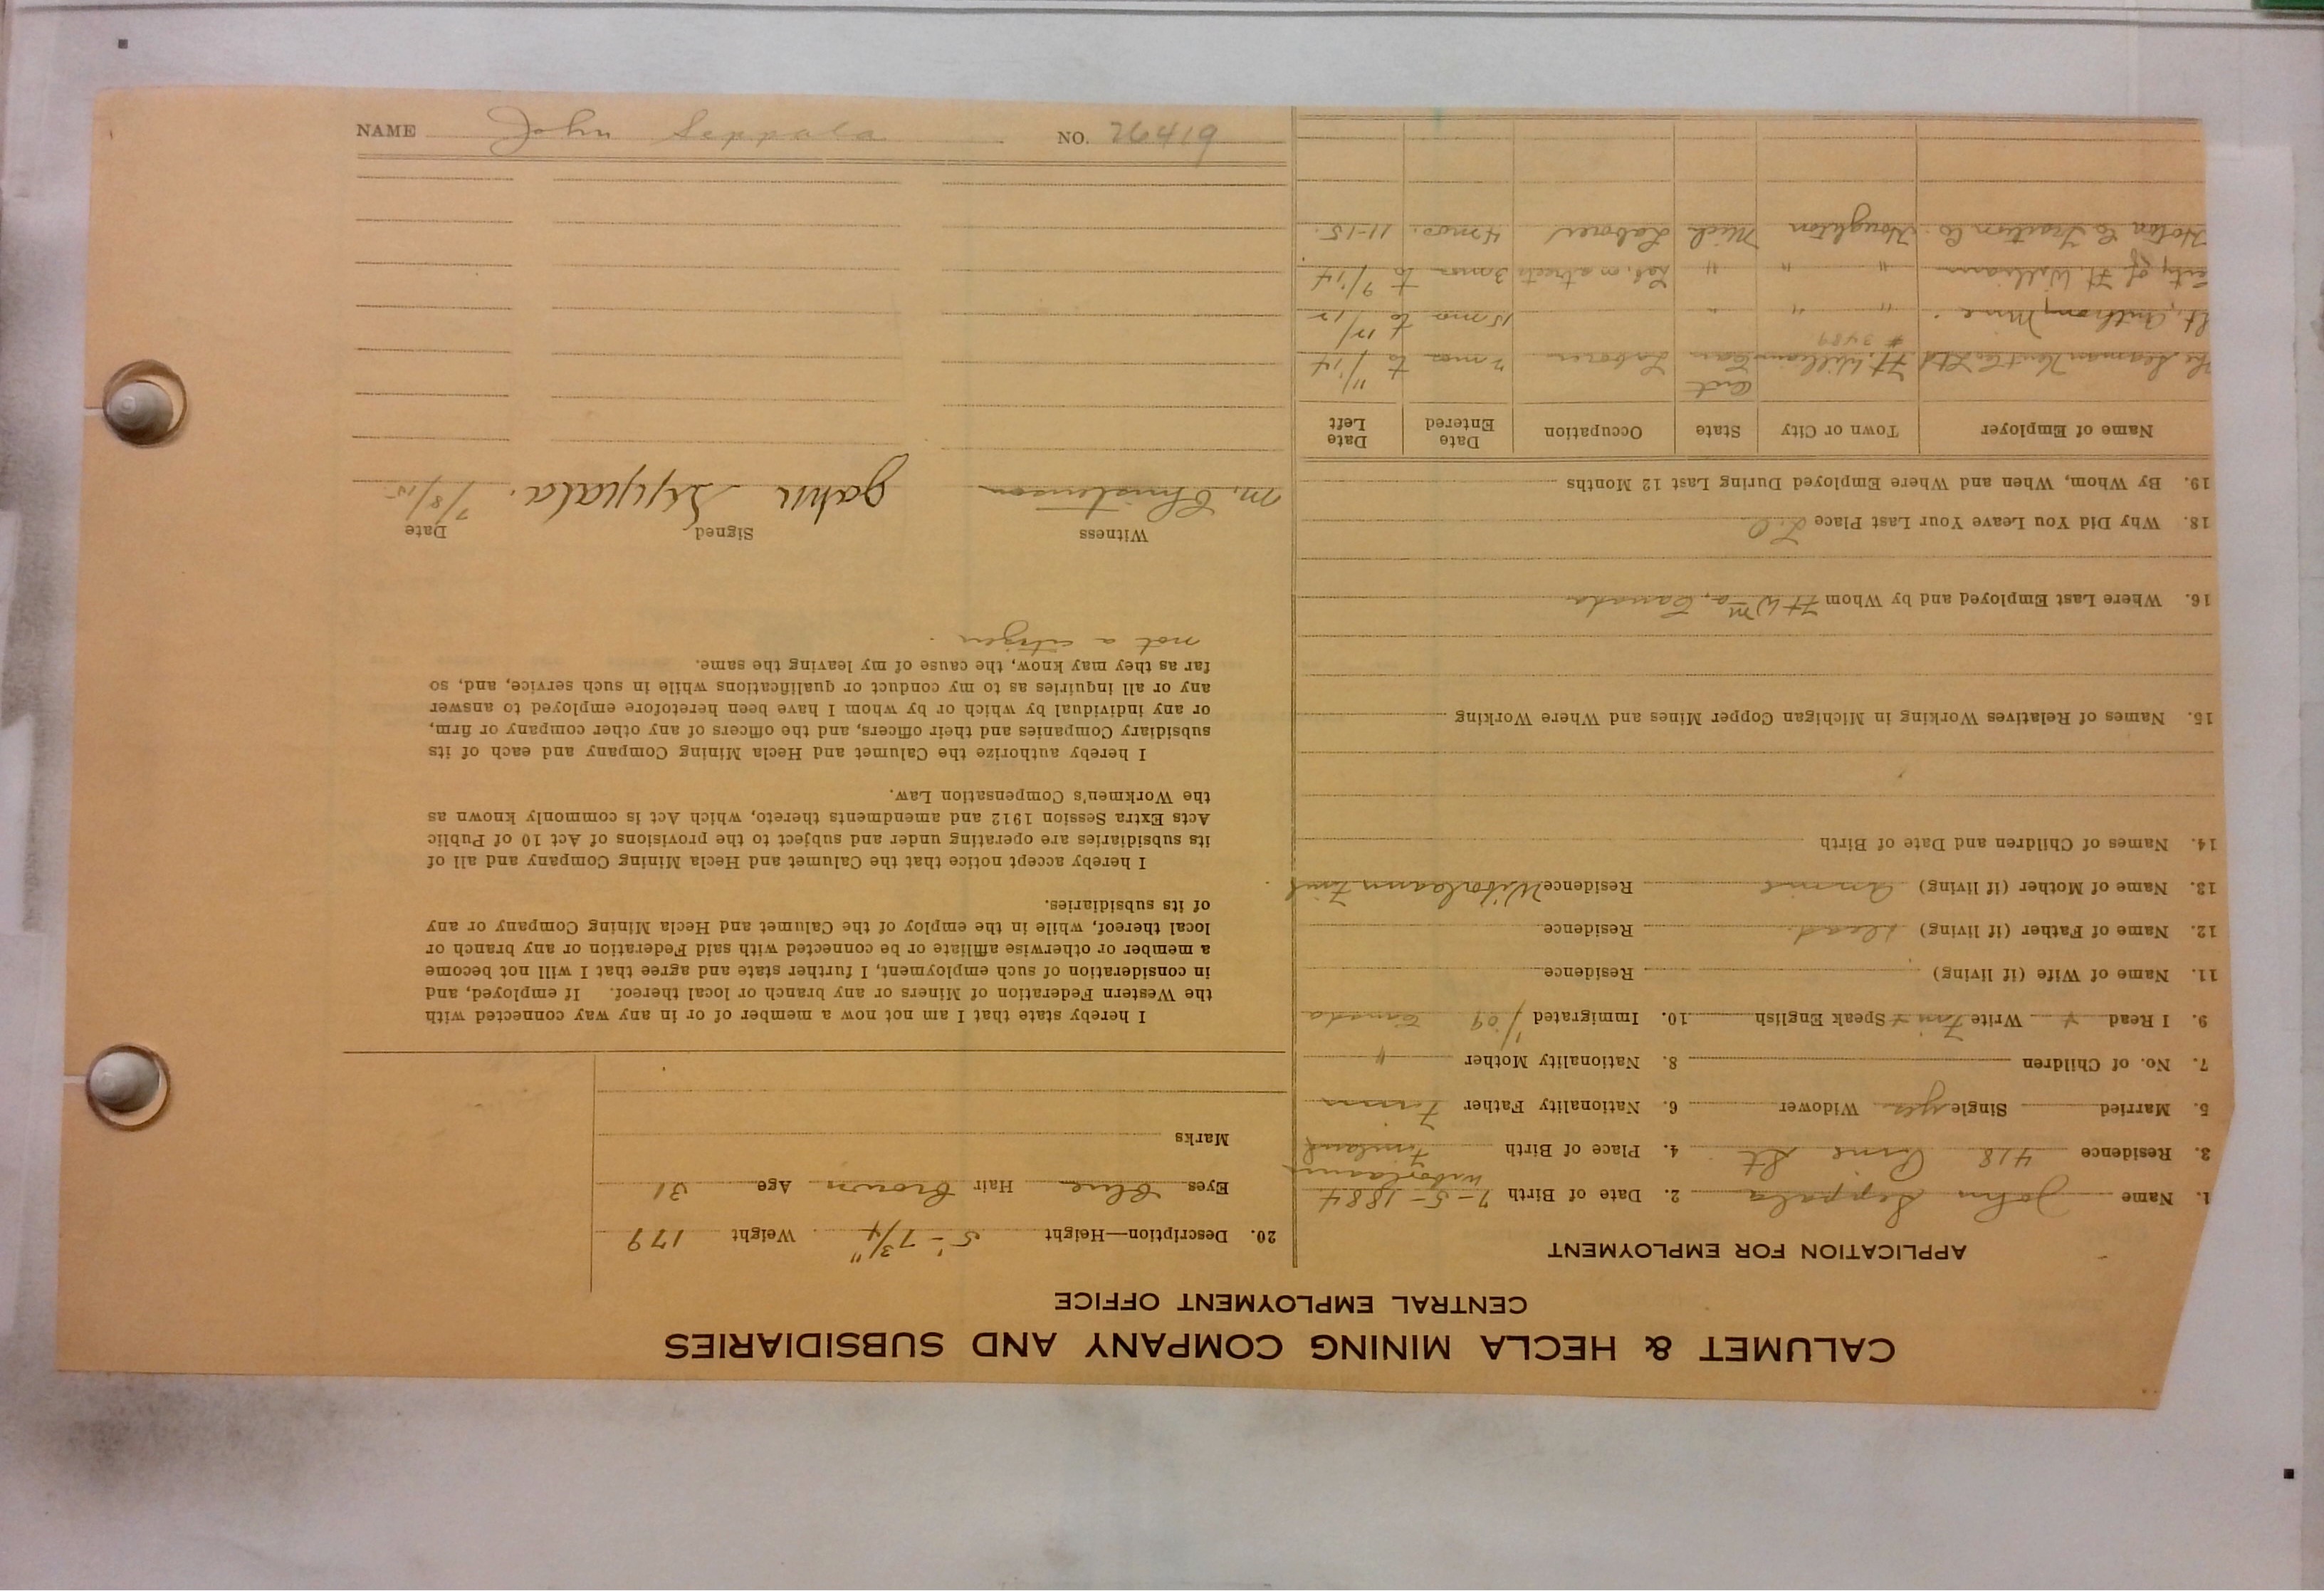 CALUMET & HECLA MINING COMPANY AND SUBSIDIARIES
CENTRAL EMPLOYMENT OFFICE
APPLICATION FOR EMPLOYMENT
1. Name John Seppala 2. Date of Birth 7-5-1884
3. Residence 418 Pine St 4. Place of Birth Finland
5. Married Single yes Widower 6. Nationality Father Finn
7. No. of Children 8. Nationality Mother "
9. I Read + Write Finn + Speak English 10. Immigrated 1/09 Canada
11. Name of Wife (if living) Residence
12. Name of Father (if living) dead. Residence
13. Name of Mother (if living) Residence
14. Names of Children and Date of Birth
15. Names of Relatives Working in Michigan Copper Mines and Where Working
16. Where Last Employed and by Whom Ft Wm Canada
18. Why Did You Leave Your Last Place
19. By Whom, When and Where Employed During Last 12 Months
Name of Employer Town or City State Occupation Date Entered Date Left
Ft. William Can Laborer 2 mos to 11/14
#3489
St. Anthony Mine. " " " 15 mos to 12/12
City of Ft. William " " " Lab. on streets 3 mos to 9/14
Hoton Co Traction Co. Houghton Mich Laborer 4 mos. 11-15.
20. Description—Height 5'-7 3/4" Weight 179
Eyes Blue Hair Brown Age 31
Marks
I hereby state that I am not now a member of or in any way connected with
the Western Federation of Miners or any branch or local thereof. If employed, and
in consideration of such employment, I further state and agree that I will not become
a member or otherwise affiliate or be connected with said Federation or any branch or
local thereof, while in the employ of the Calumet and Hecla Mining Company or any
of its subsidiaries.
I hereby accept notice that the Calumet and Hecla Mining Company and all of
its subsidiaries are operating under and subject to the provisions of Act 10 of Public
Acts Extra Session 1912 and amendments thereto, which Act is commonly known as
the Workmen's Compensation Law.
I hereby authorize the Calumet and Hecla Mining Company and each of its
subsidiary Companies and their officers, and the officers of any other company or firm,
or any individual by which or by whom I have been heretofore employed to answer
any or all inquiries as to my conduct or qualifications while in such service, and, so
far as they may know, the cause of my leaving the same.
not a citizen.
Witness Signed Date
M. Christenson John Seppala. 7/8/15
NAME John Seppala NO. 26419